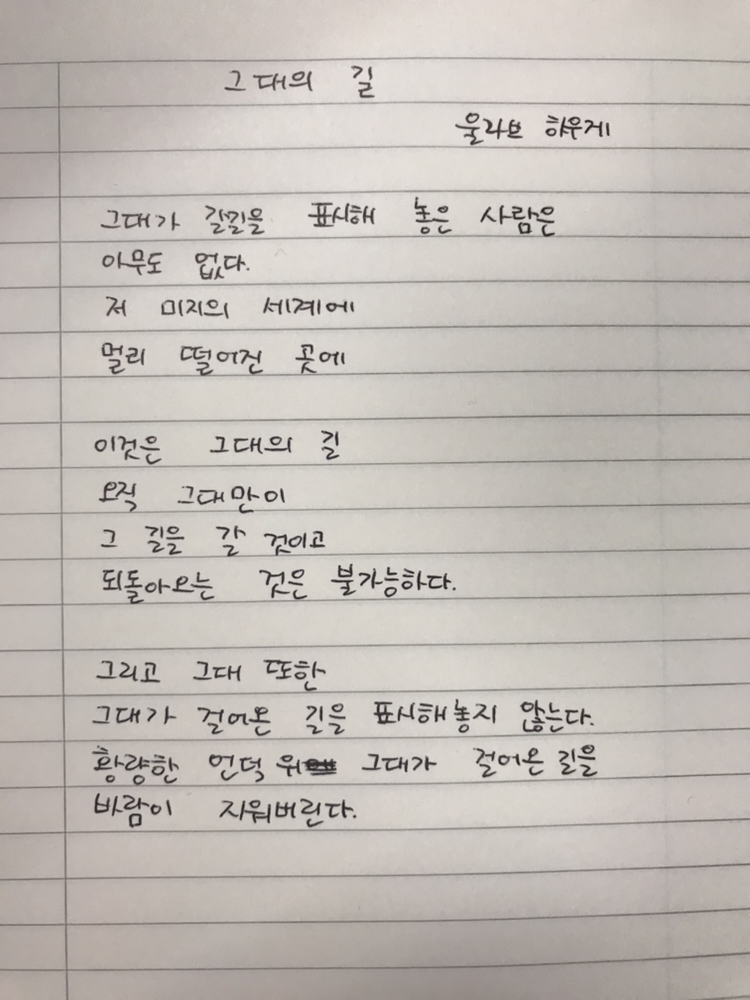 그대의 길
울라브 하우게
그대가 갈길을 표시해 놓은 사람은
아무도 없다.
저 미지의 세계에
멀리 떨어진 곳에
이것은 그대의 길
오직 그대만이
그 길을 갈 것이고
되돌아오는 것은 불가능하다.
그리고 그대 또한
그대가 걸어온 길을 표시해놓지 않는다.
황량한 언덕 위 그대가 걸어온 길을
바람이 지워버린다.